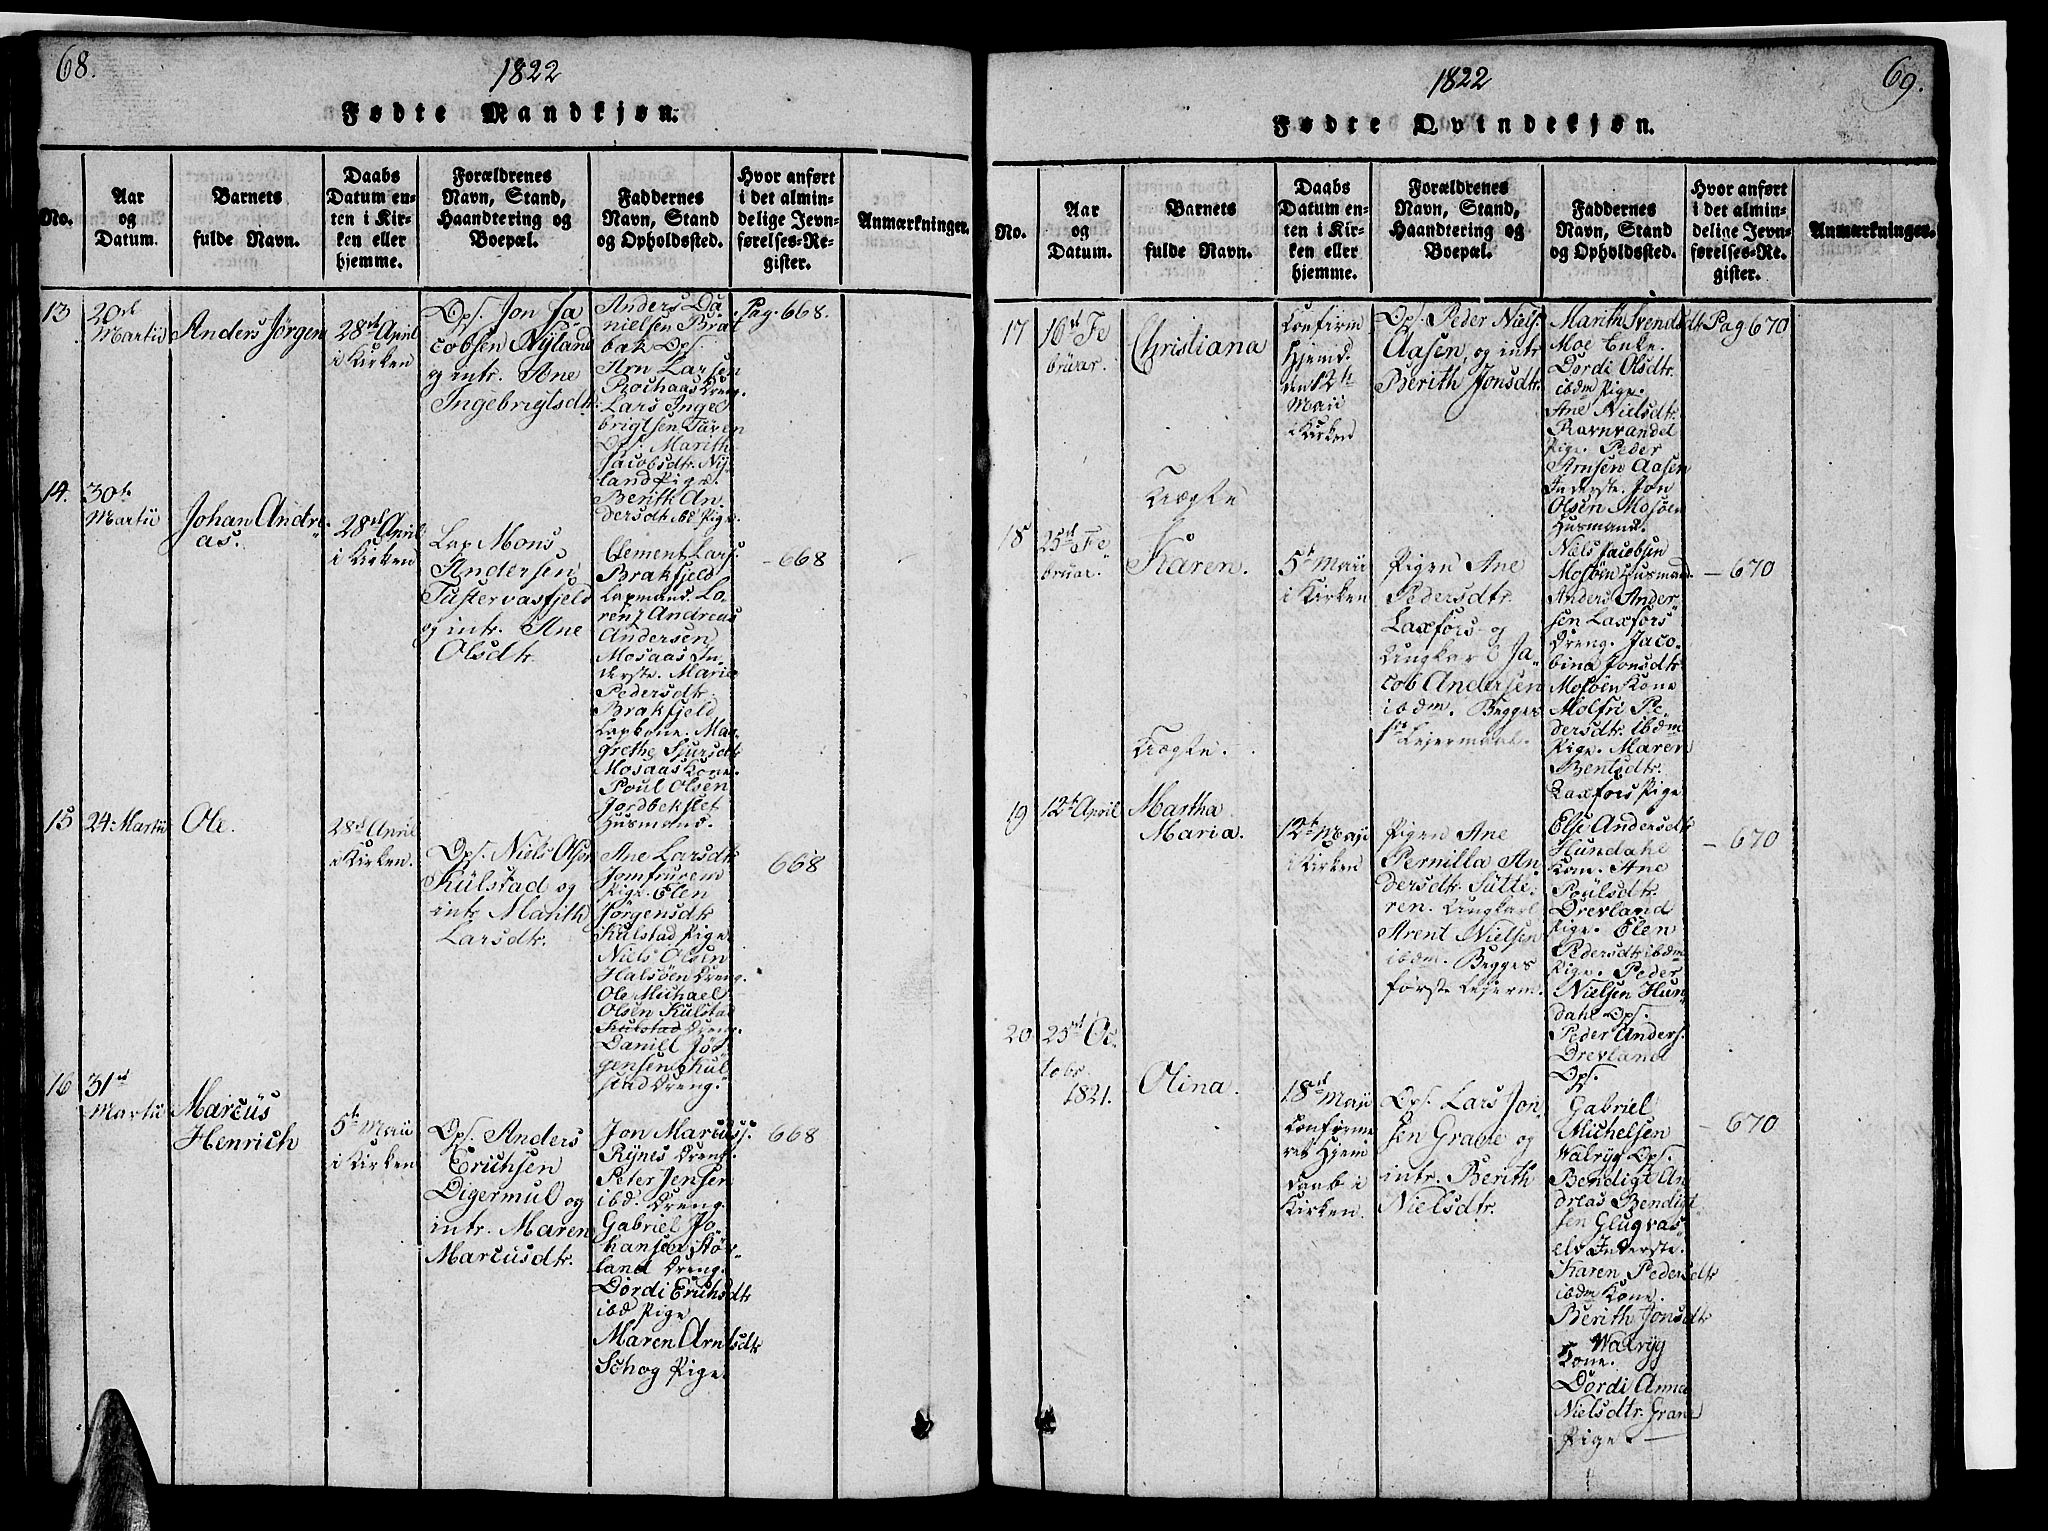 68.
1822
Fødte Mandkjøn.
No.
Aar
og
Datum.
Barnets
fulde Navn.
Daabs
Datum en-
ten i Kir-
ken eller
hjemme.
Forældrenes
Navn, Stand,
Haandtering og
Boepæl.
Faddernes
Navn, Stand
og Opholdssted.
Hvor anført
i det almin-
delige Jevn-
førelses-Re-
gister.
Anmærkninger.
13
20de
Martii
Anders Jörgen
28de April
i Kirken
Ops. Jon Ja
cobsen Nyland
og intr. Ane
Ingebrigtsdtr.
Anders Da
nielsen Bra
bak Ops.
Arn Larsen
Rochaas Dreng.
Lars Inge
brigtsen Tüven
Ops. Marith
Jacobsdtr. Ny
land Pige.
Berith An
dersdtr. ibd Pige.
Pag. 668.
14.
30te
Martii
Johan Andre
as.
28de April
i Kirken
Lap Mons
Andersen
Tustervasfjeld
og intr. Ane
Olsdtr.
Clement Lars.
Brakfjeld
Lapmand. Lo
renz Andreas
Andersen
Mosaas In
derste. Marie
Pedersdtr.
Brakfjeld
Lapkone. Mar
grethe Sjursdtr
Mosaas Kone.
Poul Olsen
Jordbekslet
Husmand.
- 668
15
24. Martii
Ole.
28de April
i Kirken.
Ops. Niels Olsen
Külstad og
intr. Marith
Larsdtr.
Ane Larsdtr
Jomfrurem
Pige. Elen
Jörgensdtr
Külstad Pige
Niels Olsen
Halsöen Dreng.
Ole Michael
Olsen Külstad
Külstad Dreng.
Daniel Jör
gensen Kül
stad Dreng.
668
16
31te
Martii
Marcüs
Henrich
5te Maii
i Kirken
Ops. Anders
Erichsen
Digermul og
intr. Maren
Marcusdtr.
Jon Marcuss.
Rynes Dreng.
Peter Jensen
ibd. Dreng.
Gabriel Jo
hansen Stör
land Dreng.
Dordi Erichsdtr
ibd Pige
Maren Arntsdtr
Schog Pige.
668
69.
1822
Fødte Qvindekjøn.
No.
Aar
og
Datum.
Barnets
fulde Navn.
Daabs
Datum en-
ten i Kir-
ken eller
hjemme.
Forældrenes
Navn, Stand,
Haandtering og
Boepæl.
Faddernes
Navn, Stand
og Opholdssted.
Hvor anført
i det almin-
delige Jevn-
førelses-Re-
gister.
Anmærkninger.
17
16de Fe
bruar.
Christiana
Confirm
Hjemd.
den 12te
Maii
i Kirken
Ops. Peder Niels.
Aasen, og intr
Berith Jonsdtr.
Marith Svendsdtr
Moe Enke.
Dordi Olsdtr.
ibdm Pige.
Ane Nielsdtr.
Ravnvandet
Pige. Peder
Arnsen Aasen
Inderste. Jon
Olsen Mosöen
Husmand.
Pag 670
Uægte
18
25de Fe
bruar.
Karen.
5te Maii
i Kirken
Pigen Ane
Pedersdtr.
Laxfors og
Ungkarl Ja
cob Andersen
ibdm. Begges
1ste Lejermaal.
Niels Jacobsen
Mosöen Husmand.
Anders Ander
sen Laxfors
Dreng. Jaco
bina Jonsdtr
Mosöen Kone
Molfri Pe
dersdtr. ibdm
Pige. Maren
Bentsdtr.
Laxfors Pige
- 670
Uægte.
19
12te April
Martha
Maria.
12te Maii
i Kirken
Pigen Ane
Pernilla An
dersdtr. Sütte
ren. Ungkarl
Arent Nielsen
ibdm. Begges
første Lejerm.
Else Andersdtr
Hundahl
Kone. Ane
Poülsdtr.
Drevland
Pige. Elen
Pedersdtr ibdm
Pige. Peder
Nielsen Hun
dahl Ops.
Peder Anders.
Drevland
Ops.
- 670
20
25de Oc
tobr.
1821.
Olina.
18de Maii
Confirme
ret Hjem
daab i
Kirken.
Ops. Lars Jon
sen Grane og
intr. Berith
Nielsdtr.
Gabriel
Michelsen
Walryg Ops.
Bendigt An
dreas Bendigt
sen Glugvas
elv Inderste.
Karen Pedersdtr
ibdm Kone.
Berith Jonsdtr
Walryg
Kone.
Dordi Anna
Nielsdtr. Grane
Pige.
- 670